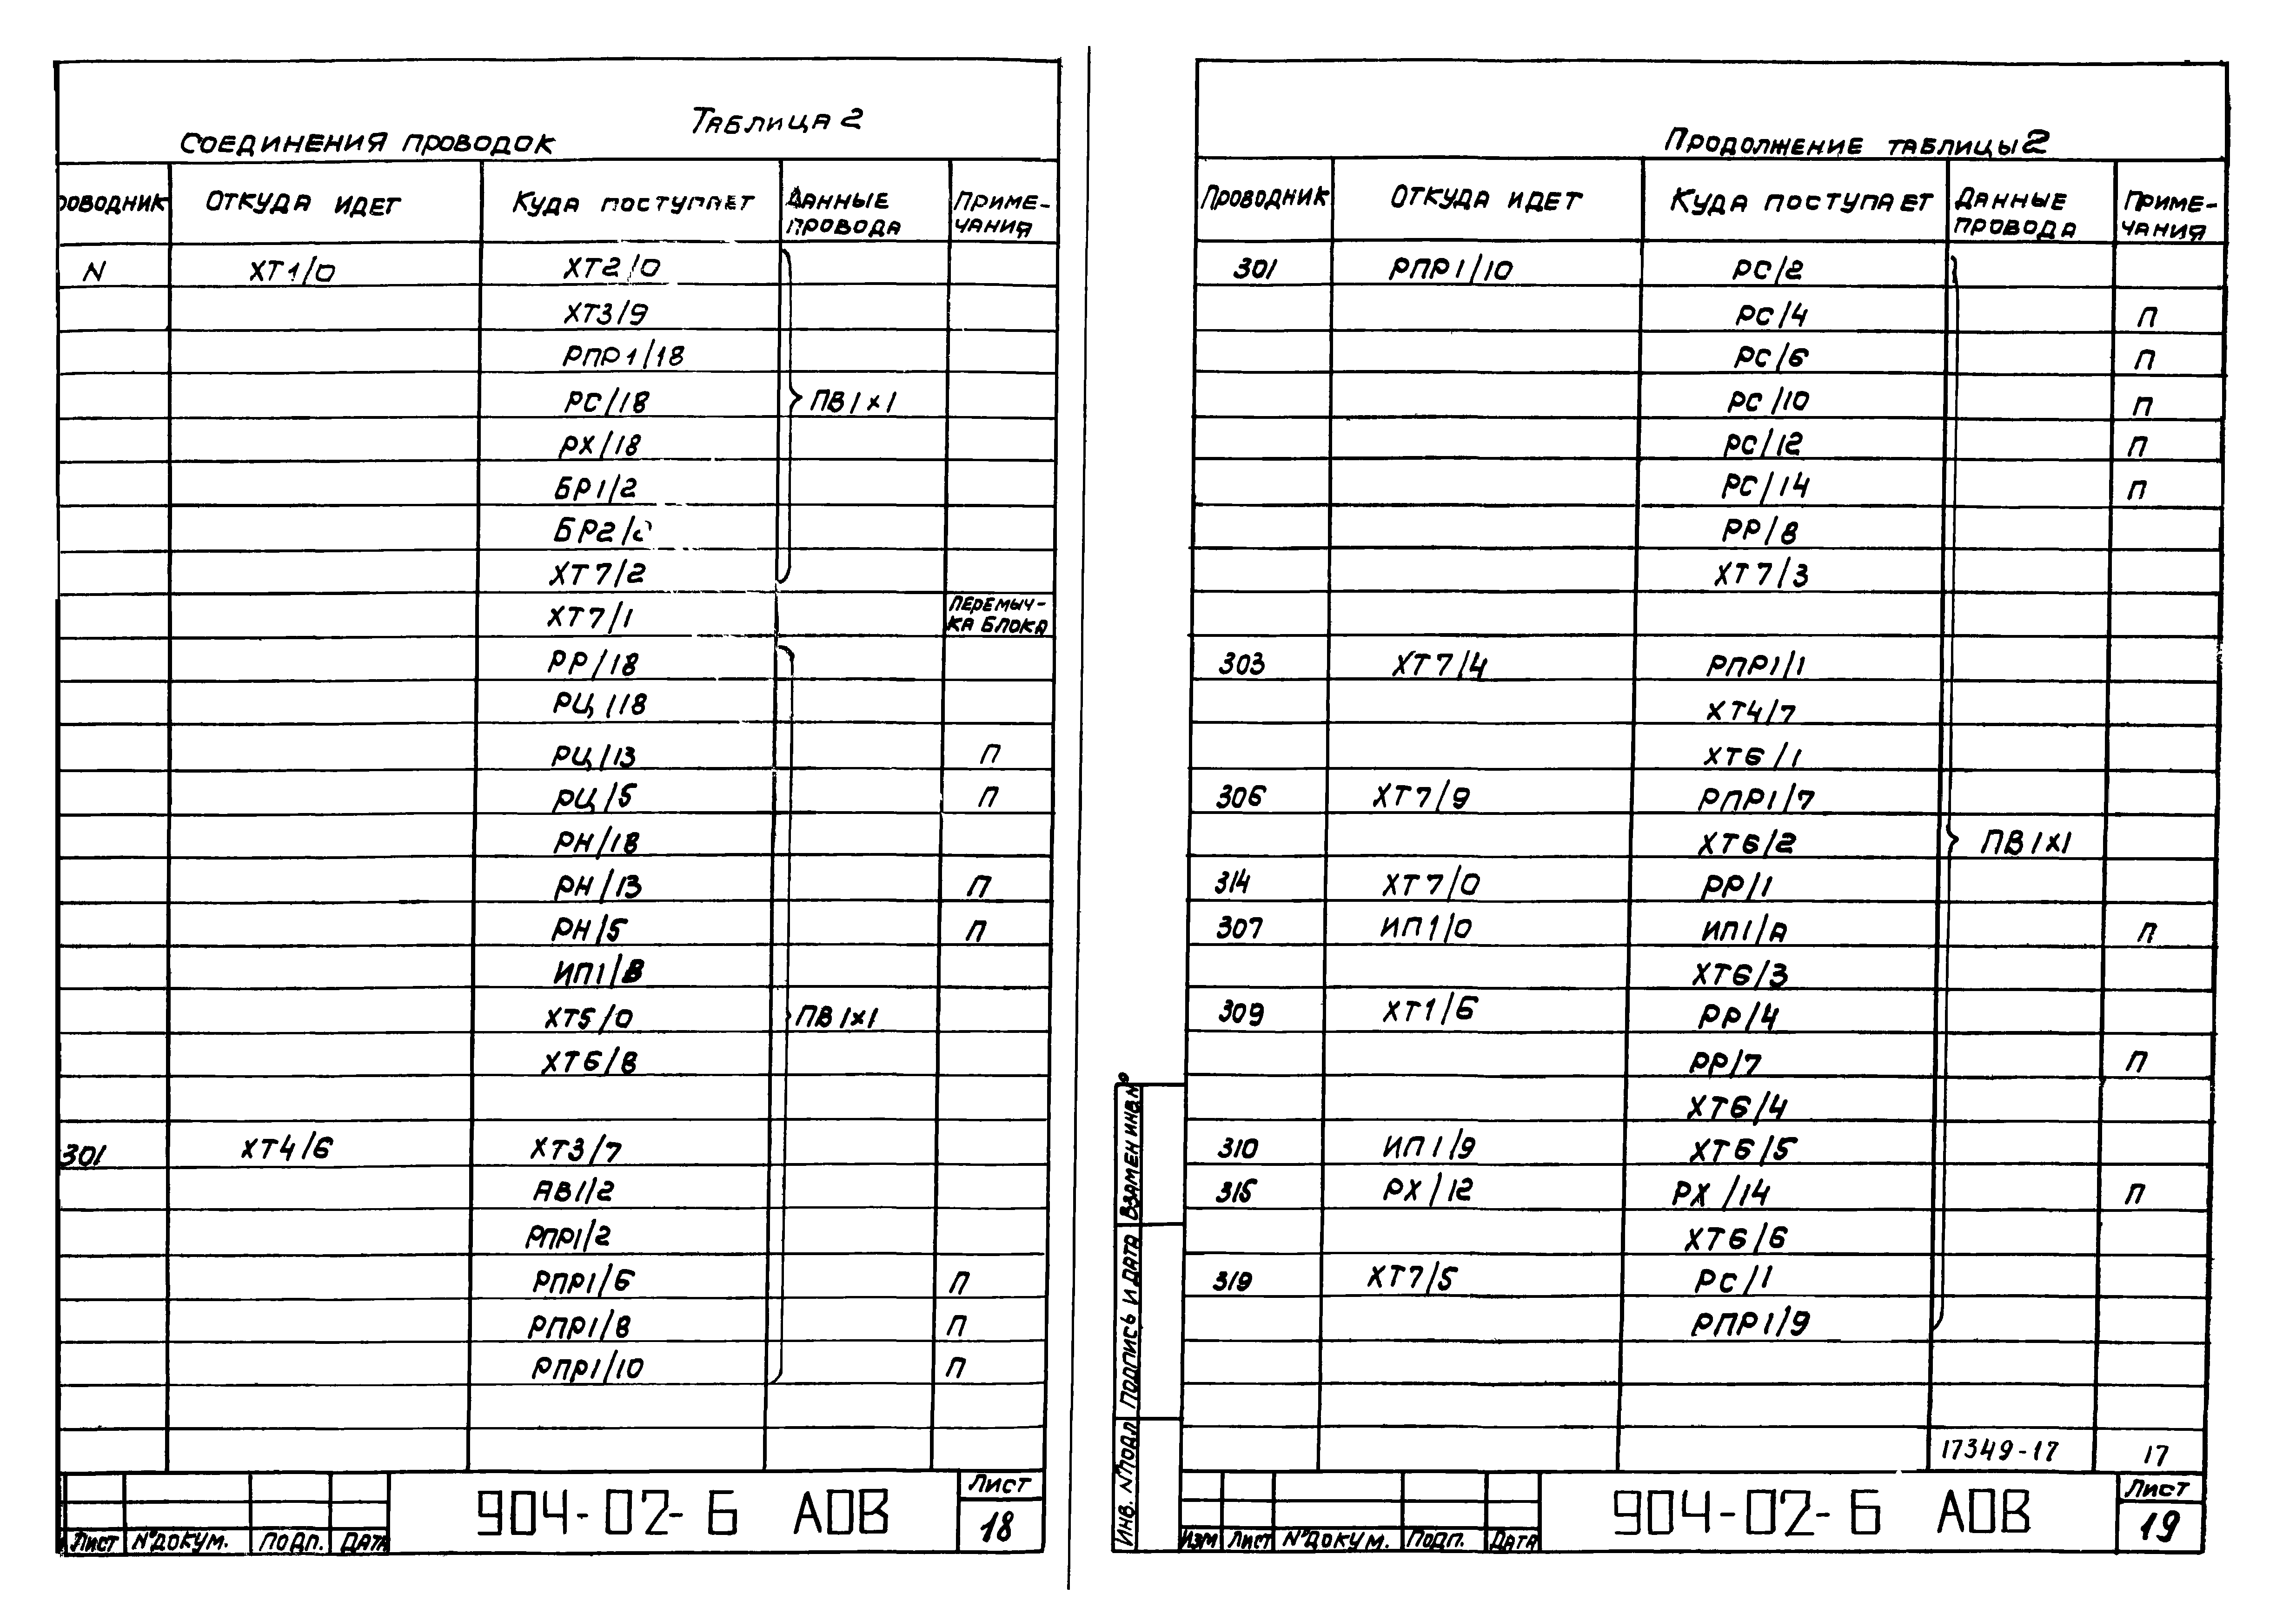 Таблица 2
Соединения проводок
роводник Откуда идет Куда поступает Данные провода Примечания
N ХТ1/0 ХТ2/0
ХТ3/9
РПР1/18
РС/18 ПВ1х1
РХ/18
БР1/2
БР2/2
ХТ7/2
ХТ7/1 Перемыч-
ка блока
РР/18
РЦ/18
РЦ/13 П
РЦ/5 П
РН/18
РН/13 П
РН/5 П
ИП1/В
ХТ5/0 ПВ1х1
ХТ6/8
301 ХТ4/6 ХТ3/7
АВ1/2
РПР1/2
РПР1/6 П
РПР1/8 П
РПР1/10 П
Лист №докум. Подп. Дата
904-02-6 АОВ
Лист
18
Продолжение таблицы 2
Проводник Откуда идет Куда поступает Данные провода Приме-
чания
301 РПР1/10 РС/2
РС/4 П
РС/6 П
РС/10 П
РС/12 П
РС/14 П
РР/8
ХТ7/3
303 ХТ7/4 РПР1/1
ХТ4/7
ХТ6/1
306 ХТ7/9 РПР1/7
ХТ6/2 ПВ1х1
314 ХТ7/0 РР/1
307 ИП1/0 ИП1/А П
ХТ6/3
309 ХТ1/6 РР/4
РР/7 П
ХТ6/4
310 ИП1/9 ХТ6/5
315 РХ/12 РХ/14 П
ХТ6/6
319 ХТ7/5 РС/1
РПР1/9
17349-17 17
Взамен инв№
Подпись и дата
Инв. №подл
Изм Лист №докум. Подп. Дата
904-02-6 АОВ
Лист
19